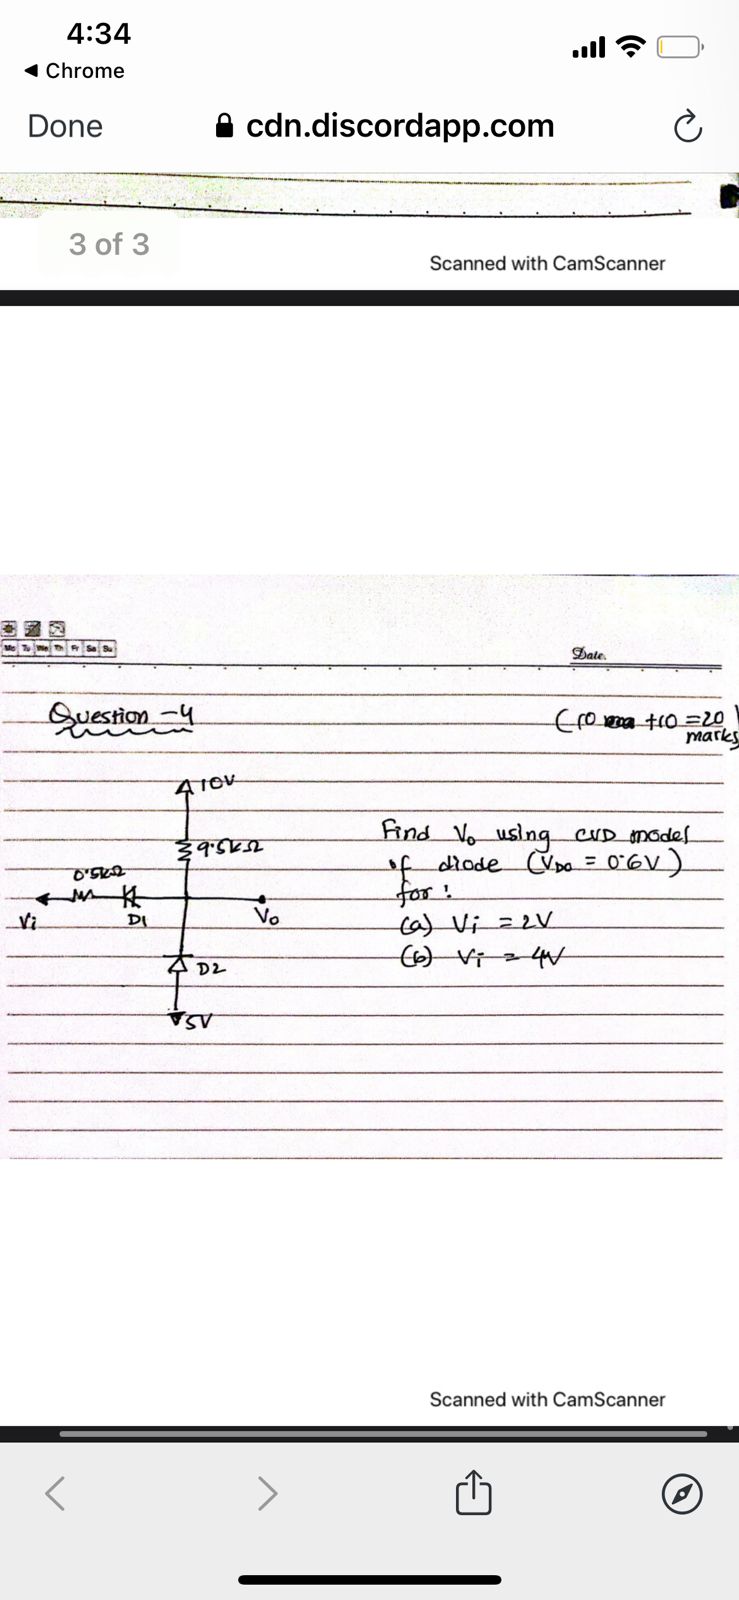 4:34
Chrome
Done
cdn.discordapp.com
3 of 3
Scanned with CamScanner
Mo Tu We Th Fr Sa Su
Date.
Question -4
(10 +10 =20)
marks
10V
9.5kΩ
0.5kΩ
Vi
D1
Vo
D2
5V
Find Vo using CVD model
of diode (VDO = 0.6V)
for:
(a) Vi = 2V
(b) Vi = 4V
Scanned with CamScanner